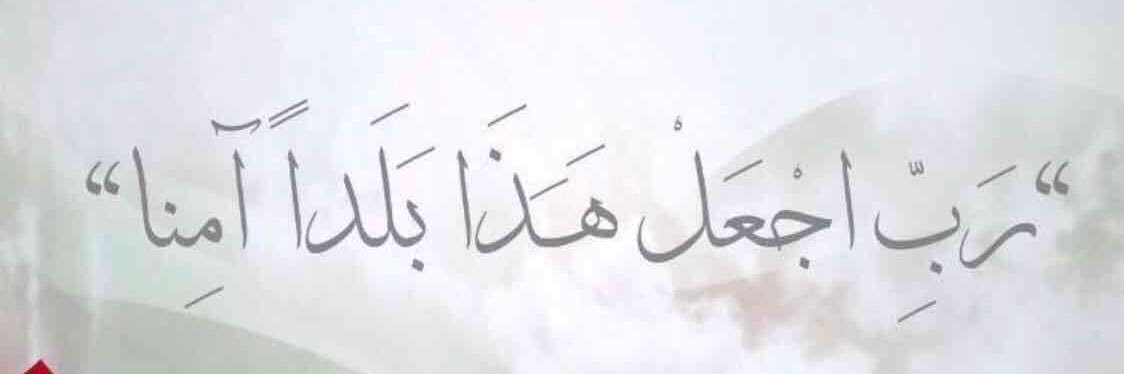 “رَبِّ اجْعَلْ هَـَذَا بَلَداً آمِنا“